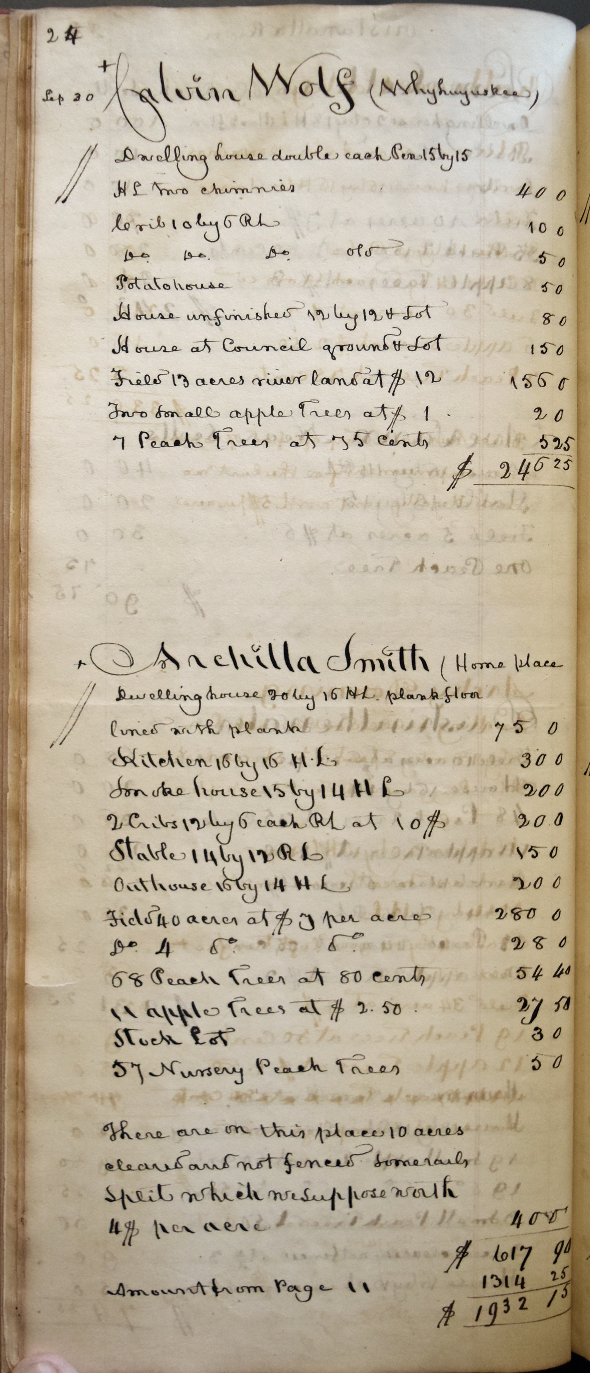 24
Sep 30 + Calvin Wolf (Whyhuyuskee)
Dwelling house double each Pen 15 by 15
HL Two chimnies 40 0
Crib 10 by 6 RL 10 0
Do Do Do old 5 0
Potatohouse 5 0
House unfinished 12 by 12 & Lot 8 0
House at Council ground & Lot 15 0
Field 13 acres river land at $ 12 156 0
Two Small apple Trees at $ 1 . 2 0
7 Peach Trees at 75 cents 5 25
$ 246 25
+ Archilla Smith (Home place
Dwelling house 20 by 16 HL. plank floor
lined with plank 75 0
Kitchen 16 by 16 H.L 30 0
Smoke house 15 by 14 H L 20 0
2 Cribs 12 by 6 each RL at 10 $ 20 0
Stable 14 by 12 R L 15 0
Outhouse 16 by 14 H L 20 0
Field 40 acres at $ 7 per acre 280 0
Do 4 do do 28 0
68 Peach Trees at 80 cents 54 40
11 apple Trees at $ 2.50 . 27 50
Stock Lot 3 0
57 Nursery Peach Trees 5 0
There are on this place 10 acres
cleared and not fenced Some rails
Split which we suppose worth
4 $ per acre 40 0
$ 617 90
Amount from Page 11 1314 25
$ 1932 15